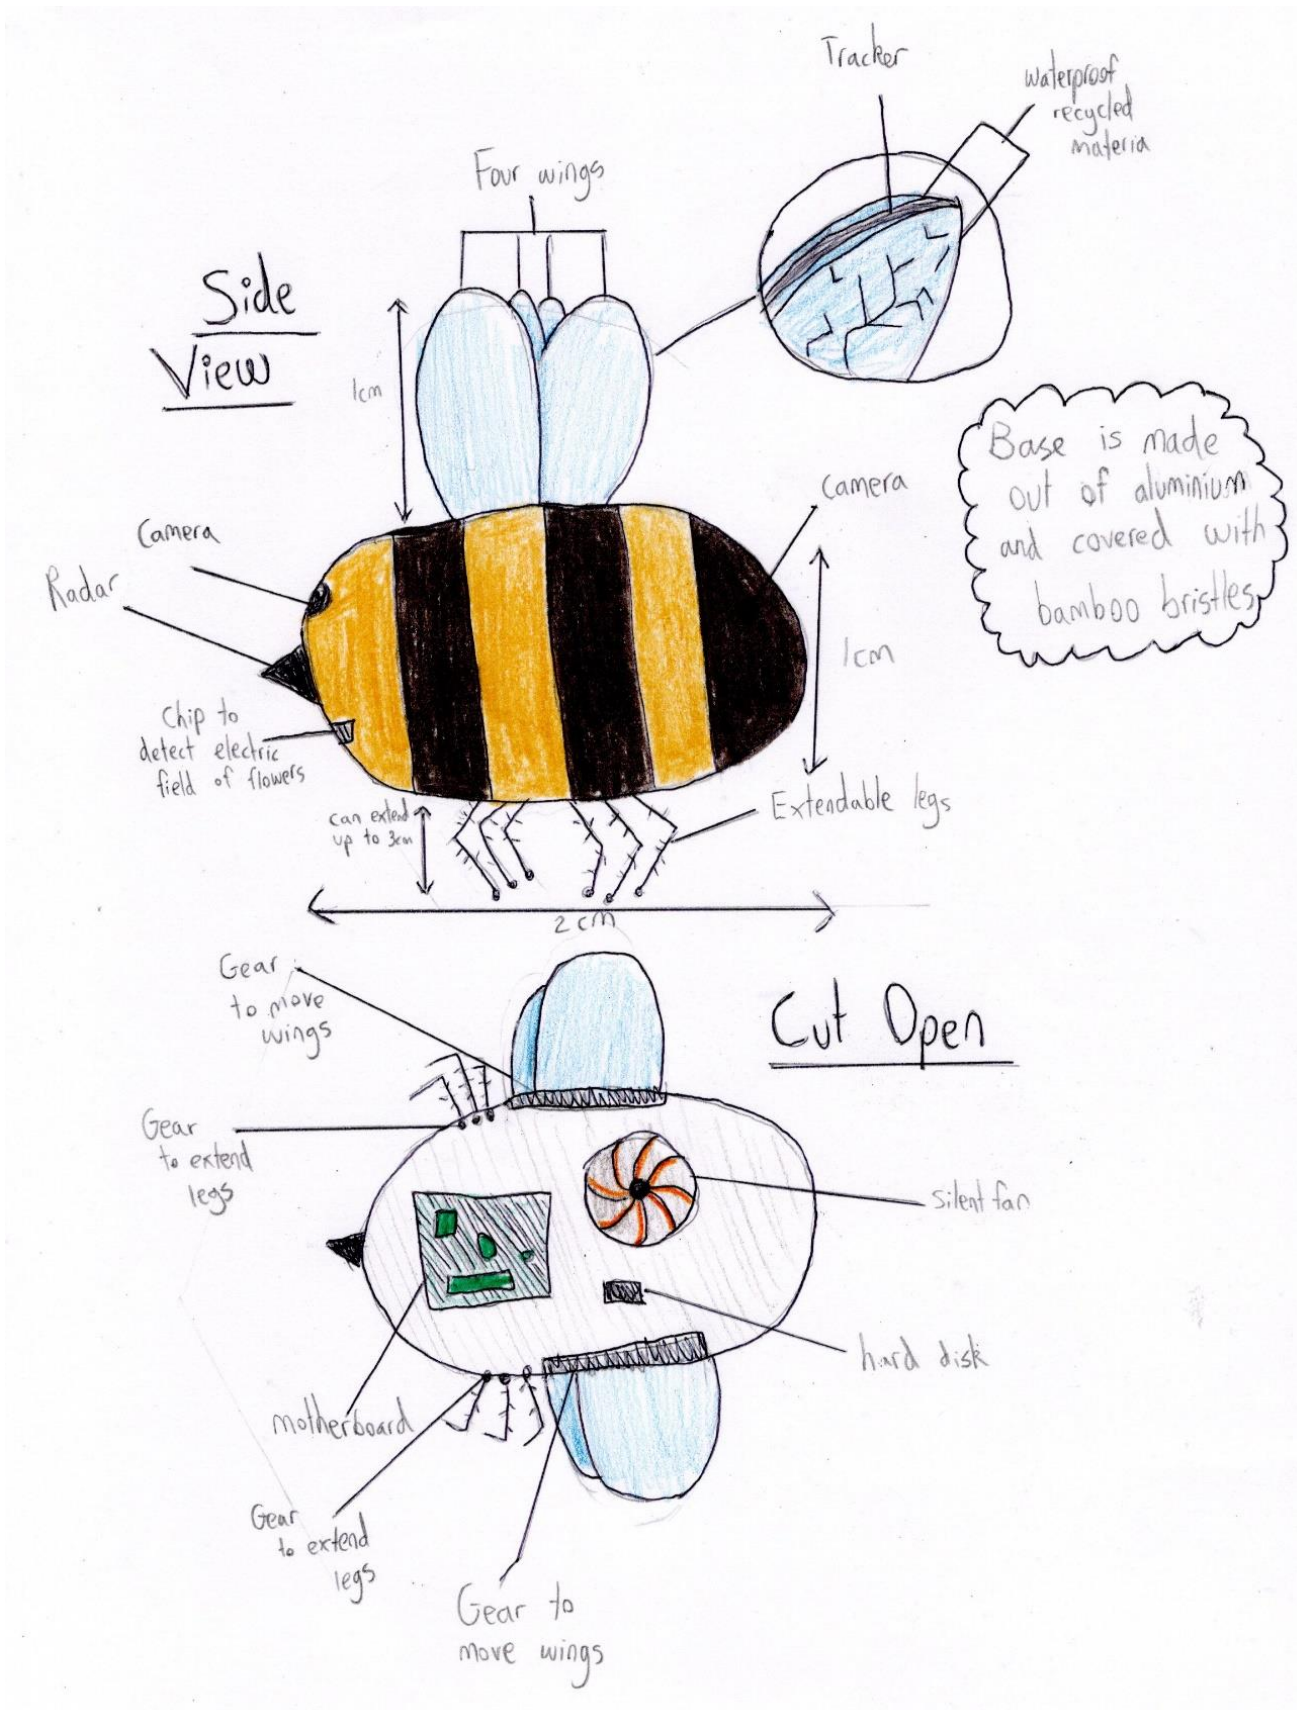 Tracker
waterproof
recycled
materia
Four wings
Side
View
1cm
Base is made
out of aluminium
and covered with
bamboo bristles
Camera
Camera
Radar
1cm
Chip to
detect electric
field of flowers
can extend
up to 3cm
Extendable legs
2cm
Gear
to move
wings
Cut Open
Gear
to extend
legs
Silent fan
hard disk
motherboard
Gear
to extend
legs
Gear to
move wings